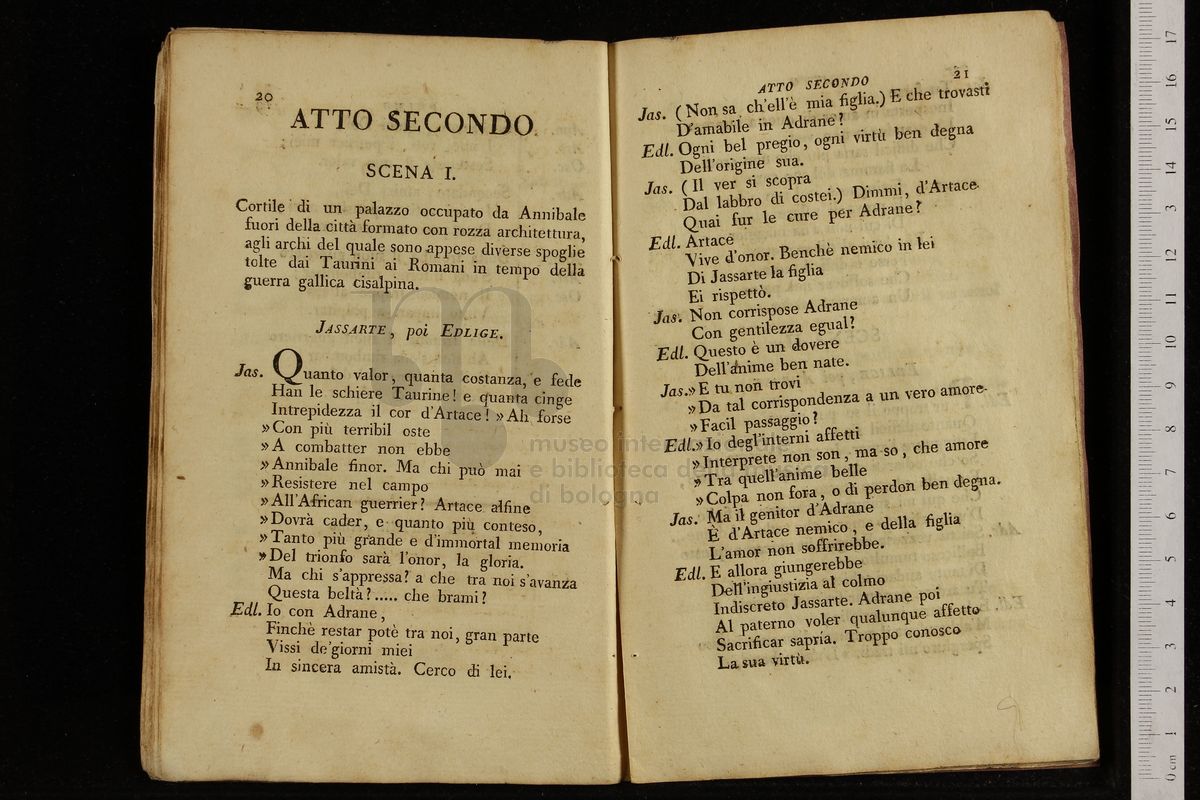 20
ATTO SECONDO
SCENA I.
Cortile di un palazzo occupato da Annibale
fuori della città formato con rozza architettura,
agli archi del quale sono appese diverse spoglie
tolte dai Taurini ai Romani in tempo della
guerra gallica cisalpina.
JASSARTE, poi EDLIGE.
Jas. Quanto valor, quanta costanza, e fede
Han le schiere Taurine! e quanta cinge
Intrepidezza il cor d'Artace! » Ah forse
» Con più terribil oste
» A combatter non ebbe
» Annibale finor. Ma chi può mai
» Resistere nel campo
» All'African guerrier? Artace alfine
» Dovrà cader, e quanto più conteso,
» Tanto più grande e d'immortal memoria
» Del trionfo sarà l'onor, la gloria.
Ma chi s'appressa? a che tra noi s'avanza
Questa beltà?..... che brami?
Edl. Io con Adrane,
Finchè restar potè tra noi, gran parte
Vissi de'giorni miei
In sincera amistà. Cerco di lei.
ATTO SECONDO 21
Jas. (Non sa ch'ell'è mia figlia.) E che trovasti
D'amabile in Adrane?
Edl. Ogni bel pregio, ogni virtù ben degna
Dell'origine sua.
Jas. (Il ver si scopra
Dal labbro di costei.) Dimmi, d'Artace
Quai fur le cure per Adrane?
Edl. Artace
Vive d'onor. Benchè nemico in lei
Di Jassarte la figlia
Ei rispettò.
Jas. Non corrispose Adrane
Con gentilezza egual?
Edl. Questo è un dovere
Dell'anime ben nate.
Jas.» E tu non trovi
» Da tal corrispondenza a un vero amore
» Facil passaggio?
Edl.» Io degl'interni affetti
» Interprete non son, ma so, che amore
» Tra quell'anime belle
» Colpa non fora, o di perdon ben degna.
Jas. Ma il genitor d'Adrane
È d'Artace nemico, e della figlia
L'amor non soffrirebbe.
Edl. E allora giungerebbe
Dell'ingiustizia al colmo
Indiscreto Jassarte. Adrane poi
Al paterno voler qualunque affetto
Sacrificar sapria. Troppo conosco
La sua virtù.
museo inte
e biblioteca de
di bologna
17
16
15
14
13
12
11
10
9
8
7
6
5
4
3
2
1
0 cm